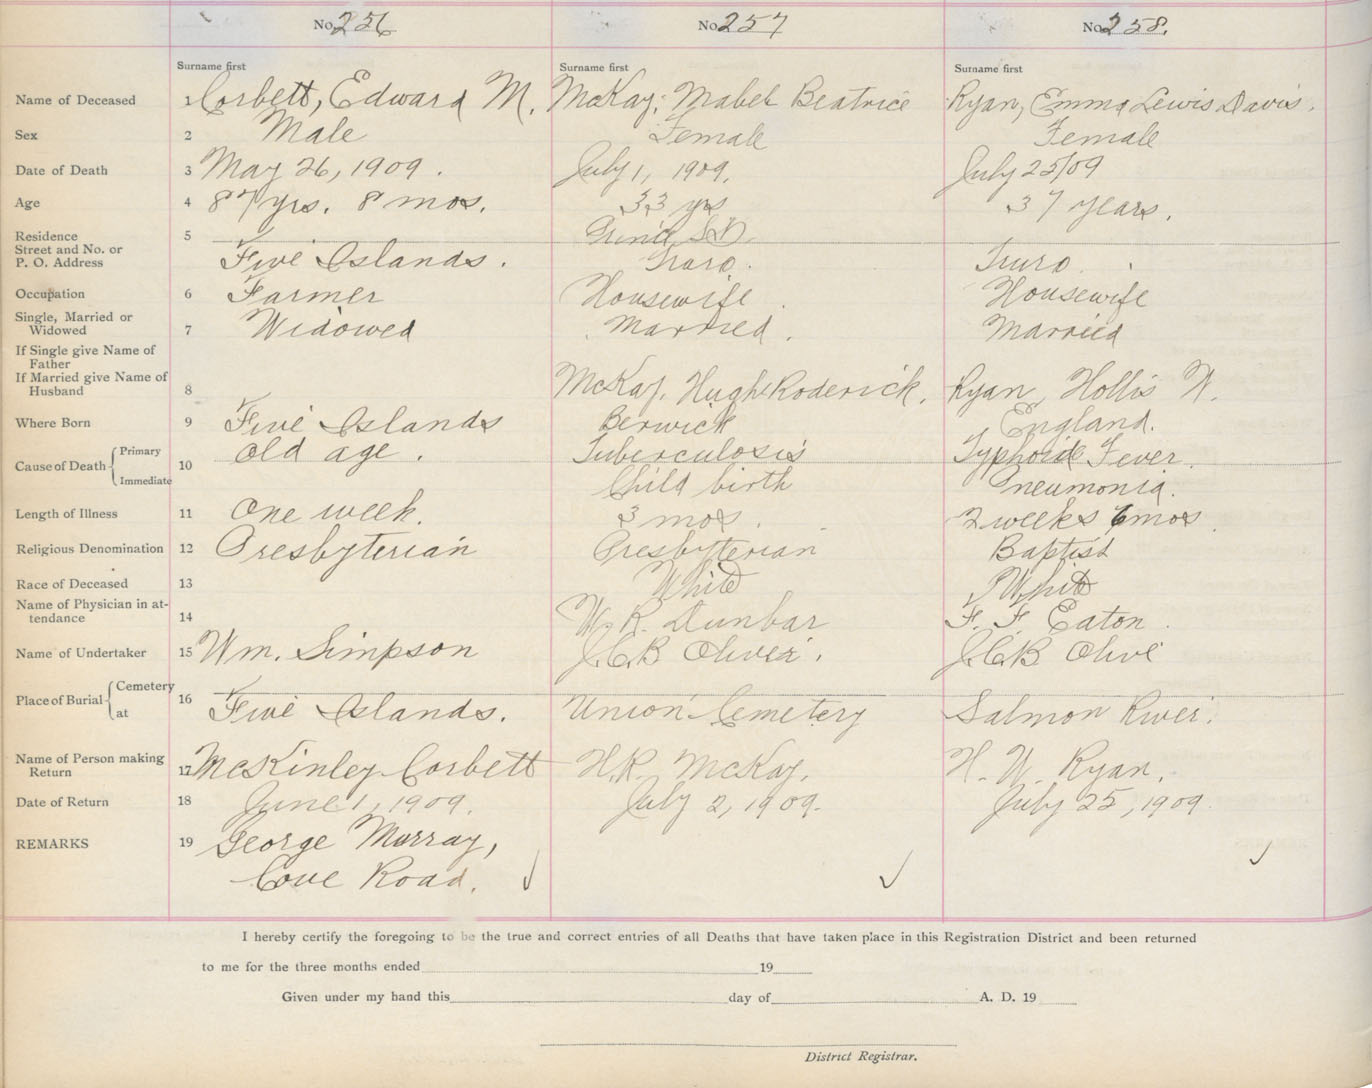 No. 256 No. 257 No. 258.
Surname first Surname first Surname first
Name of Deceased 1 Corbett, Edward M. McKay, Mabel Beatrice Ryan, Emma Lewis Davis.
Sex 2 Male Female Female
Date of Death 3 May 26, 1909. July 1, 1909. July 25/09
Age 4 87 yrs. 8 mos. 33 yrs 37 years.
Residence 5
Street and No. or
P. O. Address Five Islands. Truro. Truro.
Occupation 6 Farmer Housewife Housewife
Single, Married or
Widowed 7 Widowed Married. Married
If Single give Name of
Father
If Married give Name of
Husband 8 McKay, Hugh Roderick. Ryan, Hollis W.
Where Born 9 Five Islands Berwick England.
Cause of Death { Primary 10 Old age. Tuberculosis Typhoid Fever.
Immediate Child birth Pneumonia.
Length of Illness 11 One week. 3 mos. 2 weeks 6 mos.
Religious Denomination 12 Presbyterian Presbyterian Baptist
Race of Deceased 13 White White
Name of Physician in at-
tendance 14 W. R. Dunbar F. F. Eaton.
Name of Undertaker 15 Wm. Simpson J.C.B Olive. J.C.B Olive
Place of Burial { Cemetery 16
at Five Islands. Union Cemetery Salmon River.
Name of Person making
Return 17 McKinley Corbett H.R. McKay. H. W. Ryan.
Date of Return 18 June 1, 1909. July 2, 1909. July 25, 1909.
REMARKS 19 George Murray,
Cove Road.
I hereby certify the foregoing to be the true and correct entries of all Deaths that have taken place in this Registration District and been returned
to me for the three months ended 19
Given under my hand this day of A. D. 19
District Registrar.